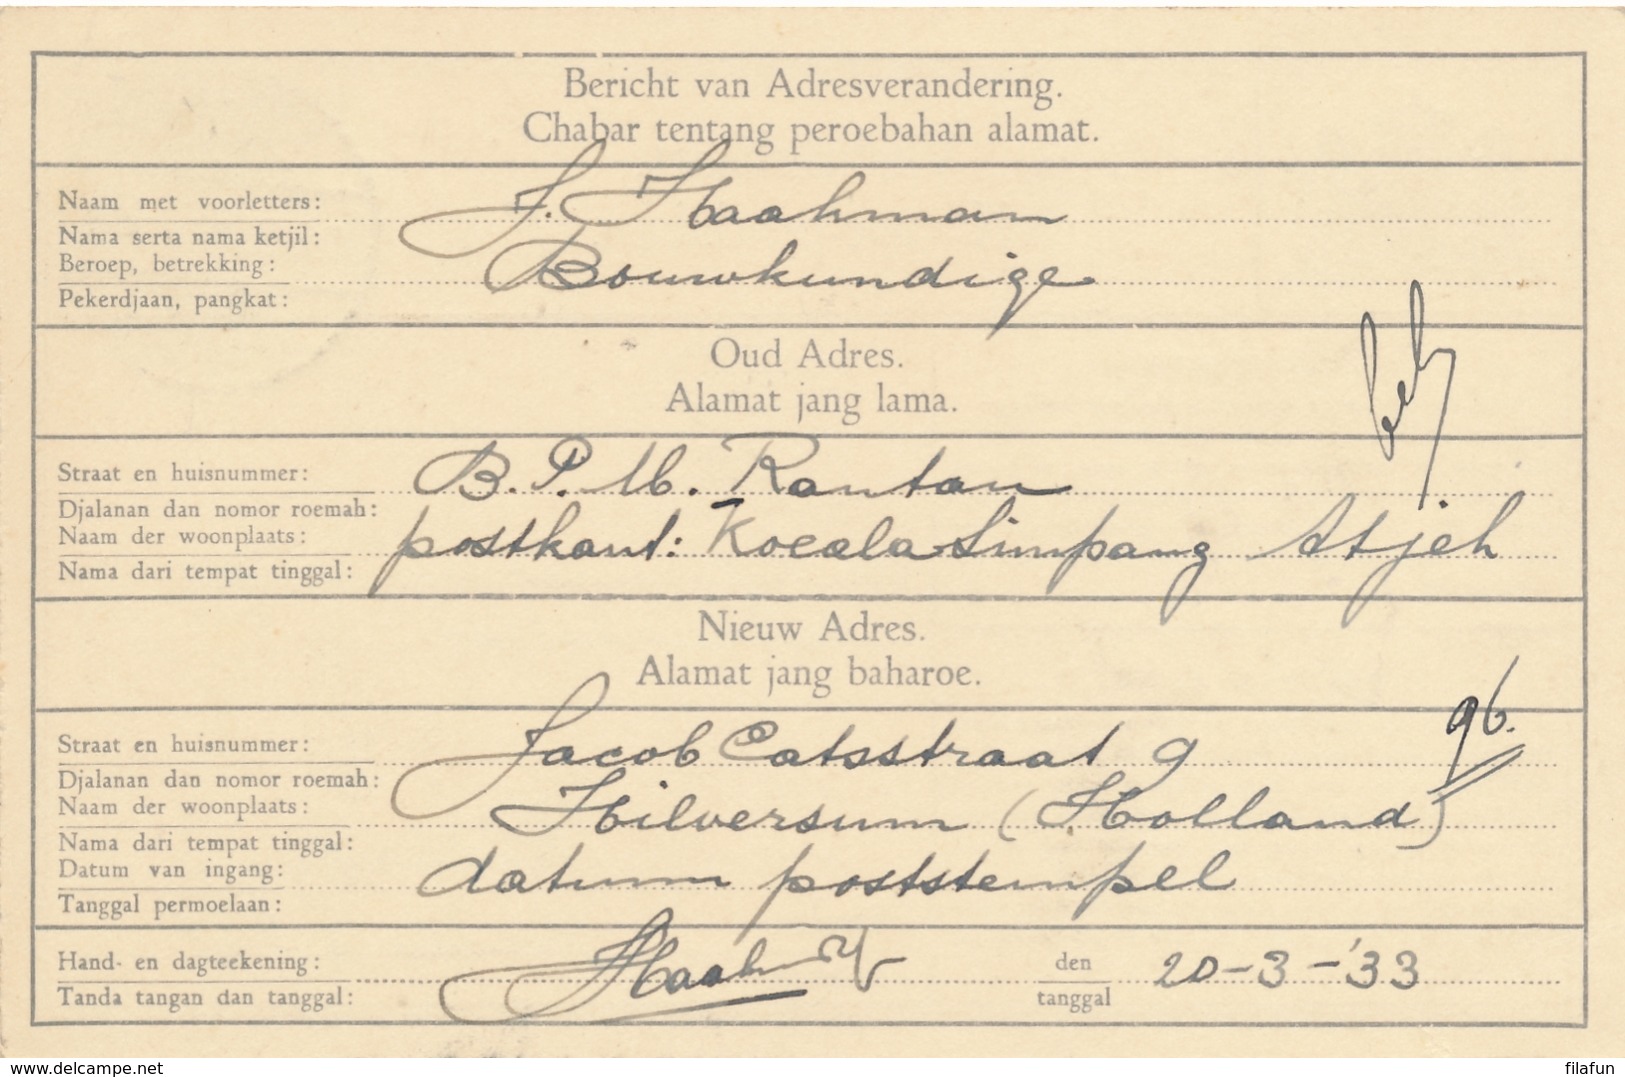 Bericht van Adresverandering.
Chabar tentang peroebahan alamat.
Naam met voorletters: J. Haahman
Nama serta nama ketjil:
Beroep, betrekking: Bouwkundige
Pekerdjaan, pangkat:
Oud Adres.
Alamat jang lama.
Straat en huisnummer: B.P.M. Rantau
Djalanan dan nomor roemah:
Naam der woonplaats: postkant: Koeala Simpang Atjeh
Nama dari tempat tinggal:
Nieuw Adres.
Alamat jang baharoe.
96.
Straat en huisnummer: Jacob Catsstraat 9
Djalanan dan nomor roemah:
Naam der woonplaats: Hilversum (Holland)
Nama dari tempat tinggal:
Datum van ingang: datum poststempel
Tanggal permoelaan:
Hand- en dagteekening: den 20-3-'33
Tanda tangan dan tanggal: tanggal
www.delcampe.net
filafun